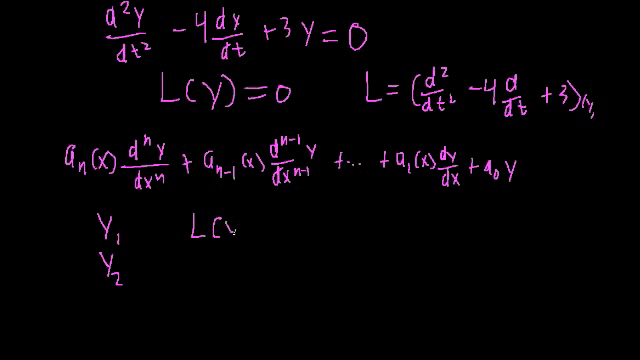 d²y/dt² - 4 dy/dt + 3y = 0
L(y) = 0 L = (d²/dt² - 4 d/dt + 3)(y)
aₙ(x) dⁿy/dxⁿ + aₙ₋₁(x) dⁿ⁻¹y/dxⁿ⁻¹ + ... + a₁(x) dy/dx + a₀ y
y₁ L(y
y₂